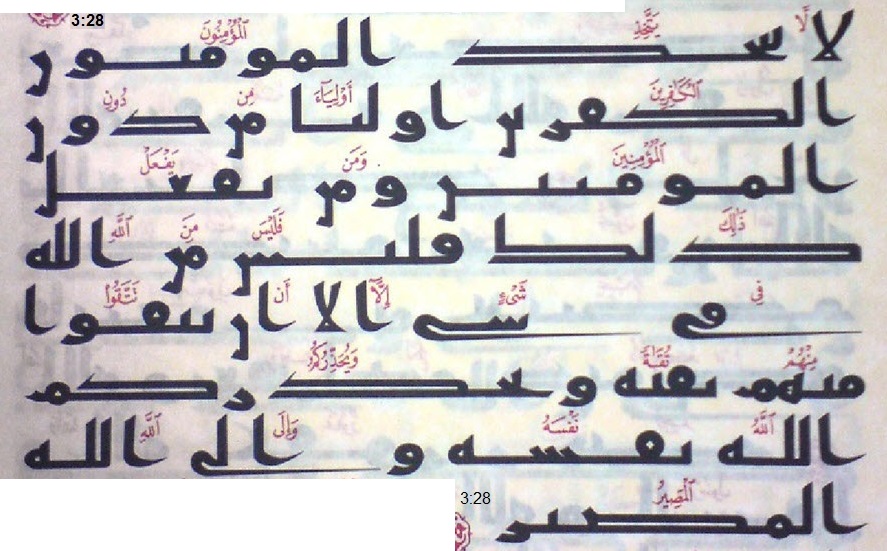 3:28
لَا يَتَّخِذِ ٱلْمُؤْمِنُونَ
لا يتخذ المومنون
ٱلْكَافِرِينَ أَوْلِيَآءَ مِن دُونِ
الكفرين اوليا من دون
ٱلْمُؤْمِنِينَ وَمَن يَفْعَلْ
المومنين ومن يفعل
ذَٰلِكَ فَلَيْسَ مِنَ ٱللَّهِ
ذلك فليس من الله
فِي شَيْءٍ إِلَّآ أَن تَتَّقُوا۟
في شي الا ان تتقوا
مِنْهُمْ تُقَاةً وَيُحَذِّرُكُمُ
منهم تقيه ويحذركم
ٱللَّهُ نَفْسَهُ وَإِلَى ٱللَّهِ
الله نفسه والى الله
3:28
ٱلْمَصِيرُ
المصير